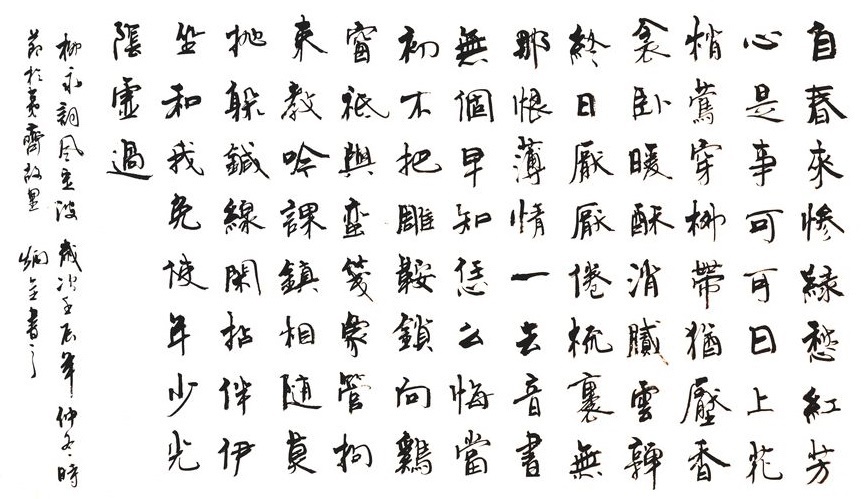 自春來慘緑愁紅芳
心是事可可日上花
悄鶯穿柳帶猶壓香
衾卧暖酥消膩雲軃
終日厭厭倦梳裹無
那恨薄情一去音書
無個早知恁么悔當
初不把雕鞍鎖向鷄
窗祇與蛮箋象管拘
束教吟課鎮相随莫
抛躲鍼線閑拈伴伊
坐和我免使年少光
陰虚過
柳永詞风定波 歲次壬辰年仲冬時
節於齊故里 書之